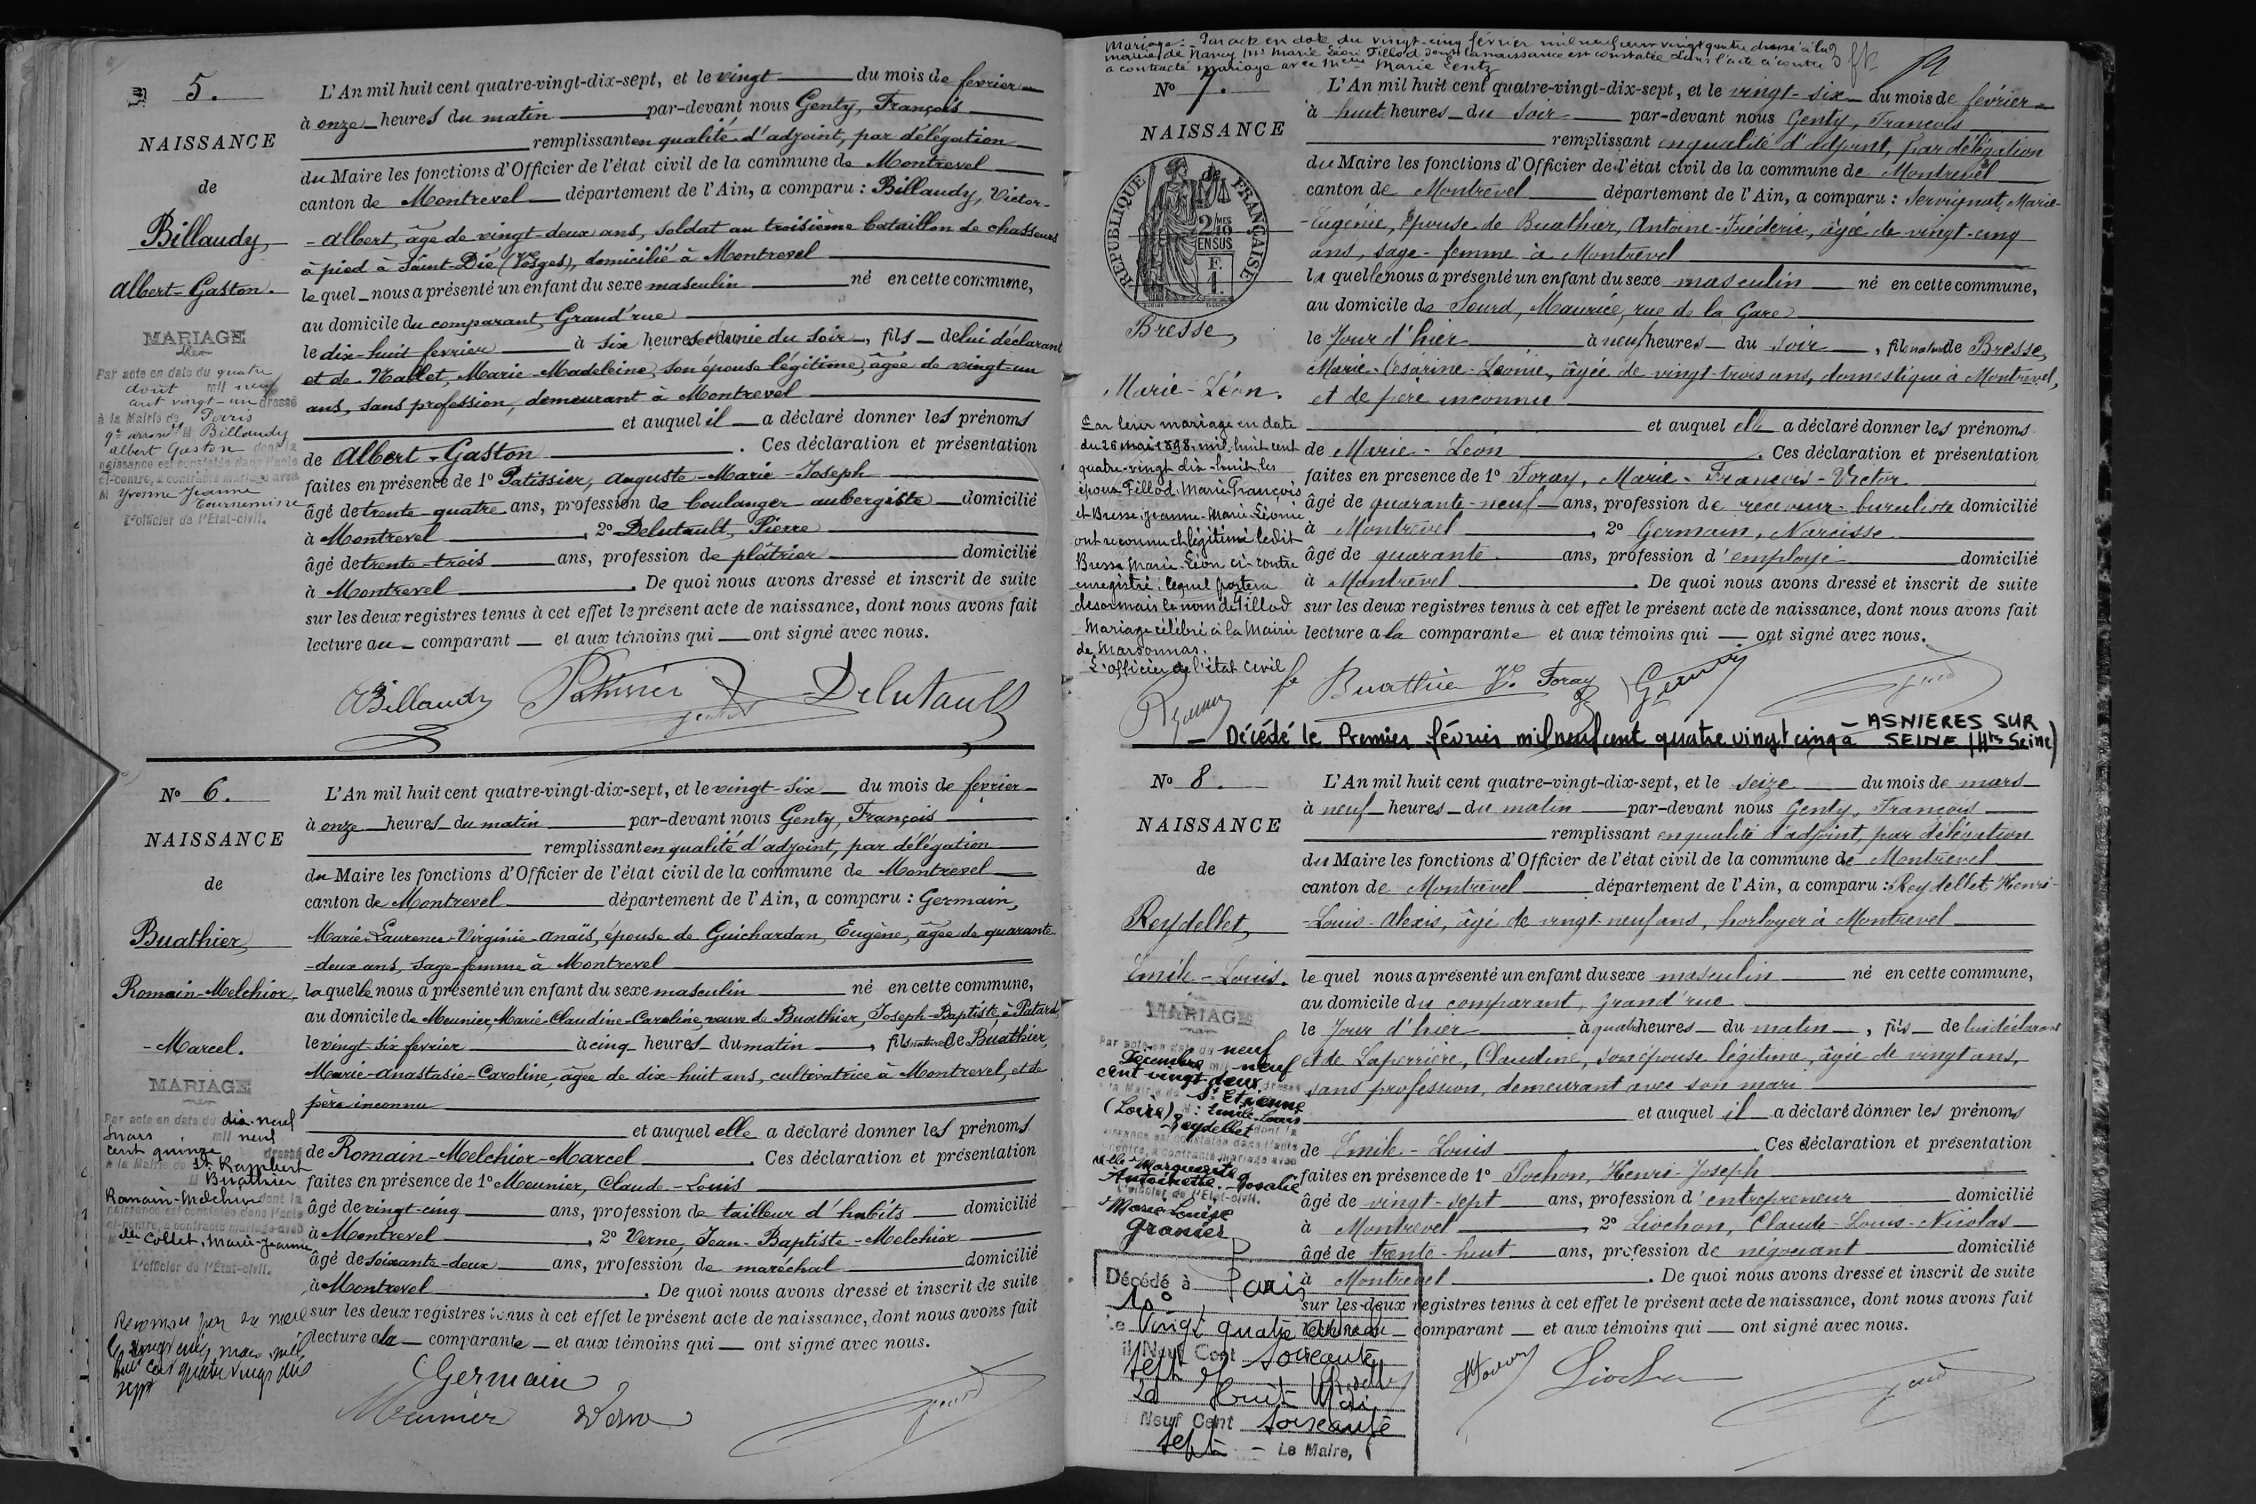 N° 5.
NAISSANCE
de
Billaudy,
Albert-Gaston.
MARIAGE
Par acte en date du quatre
août mil neuf
cent vingt-un dressé
à la Mairie de Paris
9e arront M Billaudy
Albert Gaston dont la
naissance est constatée dans l'acte
ci-contre, a contracté mariage avec
M Yvonne Jeanne
Tournemine
L'officier de l'État-civil.
L'An mil huit cent quatre-vingt-dix-sept, et le vingt du mois de fevrier
à onze heures du matin par-devant nous Genty, François
remplissant en qualité d'adjoint, par délégation
du Maire les fonctions d'Officier de l'état civil de la commune de Montrevel
canton de Montrevel département de l'Ain, a comparu : Billaudy, Victor-
-Albert, âgé de vingt-deux ans, soldat au troisième bataillon de chasseurs
à pied à Saint-Dié (Vosges), domicilié à Montrevel
le quel nous a présenté un enfant du sexe masculin né en cette commune,
au domicile du comparant, Grand'rue
le dix-huit fevrier à six heures et demie du soir, fils de lui déclarant
et de Nallet, Marie-Madeleine, son épouse légitime, âgée de vingt-un
ans, sans profession, demeurant à Montrevel
et auquel il a déclaré donner les prénoms
de Albert-Gaston. Ces déclaration et présentation
faites en présence de 1° Patissier, Auguste-Marie-Joseph
âgé de trente-quatre ans, profession de boulanger aubergiste domicilié
à Montrevel, 2° Delutault, Pierre
âgé de trente-trois ans, profession de plâtrier domicilié
à Montrevel. De quoi nous avons dressé et inscrit de suite
sur les deux registres tenus à cet effet le présent acte de naissance, dont nous avons fait
lecture au comparant et aux témoins qui ont signé avec nous.
Billaudy Patissier Delutault
N° 6.
NAISSANCE
de
Buathier,
Romain-Melchior-
-Marcel.
MARIAGE
Par acte en date du dix-neuf
mars mil neuf
cent quinze dressé
à la Mairie de St Rambert
M Buathier
Romain-Melchior dont la
naissance est constatée dans l'acte
ci-contre, a contracté mariage avec
Mlle Collet, Marie-Jeanne
L'officier de l'État-civil.
Reconnu par sa mère
le vingt six mars mil
huit cent quatre vingt dix
sept
L'An mil huit cent quatre-vingt-dix-sept, et le vingt-six du mois de fevrier
à onze heures du matin par-devant nous Genty, François
remplissant en qualité d'adjoint, par délégation
du Maire les fonctions d'Officier de l'état civil de la commune de Montrevel
canton de Montrevel département de l'Ain, a comparu : Germain,
Marie-Laurence-Virginie-Anaïs, épouse de Guichardan, Eugène, âgée de quarante-
-deux ans, sage-femme à Montrevel
la quelle nous a présenté un enfant du sexe masculin né en cette commune,
au domicile de Meunier, Marie-Claudine-Caroline, veuve de Buathier, Joseph-Baptiste, à Patards,
le vingt-six fevrier à cinq heures du matin, fils naturel de Buathier,
Marie-Anastasie-Caroline, âgée de dix-huit ans, cultivatrice à Montrevel, et de
père inconnu
et auquel elle a déclaré donner les prénoms
de Romain-Melchior-Marcel. Ces déclaration et présentation
faites en présence de 1° Meunier, Claude-Louis
âgé de vingt-cinq ans, profession de tailleur d'habits domicilié
à Montrevel, 2° Verne, Jean-Baptiste-Melchior
âgé de soixante-deux ans, profession de maréchal domicilié
à Montrevel. De quoi nous avons dressé et inscrit de suite
sur les deux registres tenus à cet effet le présent acte de naissance, dont nous avons fait
lecture à la comparante et aux témoins qui ont signé avec nous.
Germain
Meunier Verne
Mariage : Par acte en date du vingt-cinq février mil neuf cent vingt quatre dressé à la
mairie de Nancy Mr Marie Léon Fillod dont la naissance est constatée dans l'acte ci contre
a contracté mariage avec Melle Marie Lentz
N° 7.
NAISSANCE
de
RÉPUBLIQUE FRANÇAISE
2/10 MES
EN SUS
F.
1.
Bresse,
Marie-Léon.
Par leur mariage en date
du 26 mai 1898 mil huit cent
quatre-vingt dix-huit les
époux Fillod Marie François
et Bresse Jeanne-Marie-Léonie
ont reconnu et légitimé ledit
Bresse Marie-Léon ci-contre
enregistré, lequel portera
désormais le nom de Fillod
Mariage célébré à la Mairie
de Marsonnas.
L'officier de l'état civil
L'An mil huit cent quatre-vingt-dix-sept, et le vingt-six du mois de février
à huit heures du soir par-devant nous Genty, François
remplissant en qualité d'adjoint, par délégation
du Maire les fonctions d'Officier de l'état civil de la commune de Montrevel
canton de Montrevel département de l'Ain, a comparu : Servignat, Marie-
-Eugénie, épouse de Buathier, Antoine-Frédéric, âgée de vingt-cinq
ans, sage-femme à Montrevel
la quelle nous a présenté un enfant du sexe masculin né en cette commune,
au domicile de Sourd, Maurice, rue de la Gare
le Jour d'hier à neuf heures du soir, fils naturel de Bresse,
Marie-Césarine-Léonie, âgée de vingt-trois ans, domestique à Montrevel,
et de père inconnu
et auquel elle a déclaré donner les prénoms
de Marie-Léon. Ces déclaration et présentation
faites en présence de 1° Foray, Marie-François-Victor
âgé de quarante-neuf ans, profession de receveur-buraliste domicilié
à Montrevel, 2° Germain, Narcisse
âgé de quarante ans, profession d'employé domicilié
à Montrevel. De quoi nous avons dressé et inscrit de suite
sur les deux registres tenus à cet effet le présent acte de naissance, dont nous avons fait
lecture à la comparante et aux témoins qui ont signé avec nous.
fe Buathier V. Foray Germain
Décédé le Premier février mil neuf cent quatre vingt cinq à ASNIERES SUR
SEINE (Hts Seine)
N° 8.
NAISSANCE
de
Reydellet,
Emile-Louis.
MARIAGE
Par acte en date du neuf
décembre mil neuf
cent vingt deux dressé
à la Mairie de St Etienne
(Loire) M : Emile-Louis
Reydellet dont la
naissance est constatée dans l'acte
ci-contre, a contracté mariage avec
Melle Marguerite
Antoinette-Rosalie
L'officier de l'État-civil.
Marie Louise
Granier
Décédé à Paris
10e
le Vingt quatre
mil Neuf Cent soixante
sept
Le huit Mai
Neuf Cent soixante
sept
Le Maire,
L'An mil huit cent quatre-vingt-dix-sept, et le seize du mois de mars
à neuf heures du matin par-devant nous Genty, François
remplissant en qualité d'adjoint, par délégation
du Maire les fonctions d'Officier de l'état civil de la commune de Montrevel
canton de Montrevel département de l'Ain, a comparu : Reydellet, Henri-
-Louis-Alexis, âgé de vingt-neuf ans, horloger à Montrevel
le quel nous a présenté un enfant du sexe masculin né en cette commune,
au domicile du comparant, grand'rue
le Jour d'hier à quatre heures du matin, fils de lui déclarant
et de Laperrière, Claudine, son épouse légitime, âgée de vingt ans,
sans profession, demeurant avec son mari
et auquel il a déclaré donner les prénoms
de Emile-Louis. Ces déclaration et présentation
faites en présence de 1° Pochon, Henri-Joseph
âgé de vingt-sept ans, profession d'entrepreneur domicilié
à Montrevel, 2° Liochon, Claude-Louis-Nicolas
âgé de trente-huit ans, profession de négociant domicilié
à Montrevel. De quoi nous avons dressé et inscrit de suite
sur les deux registres tenus à cet effet le présent acte de naissance, dont nous avons fait
lecture au comparant et aux témoins qui ont signé avec nous.